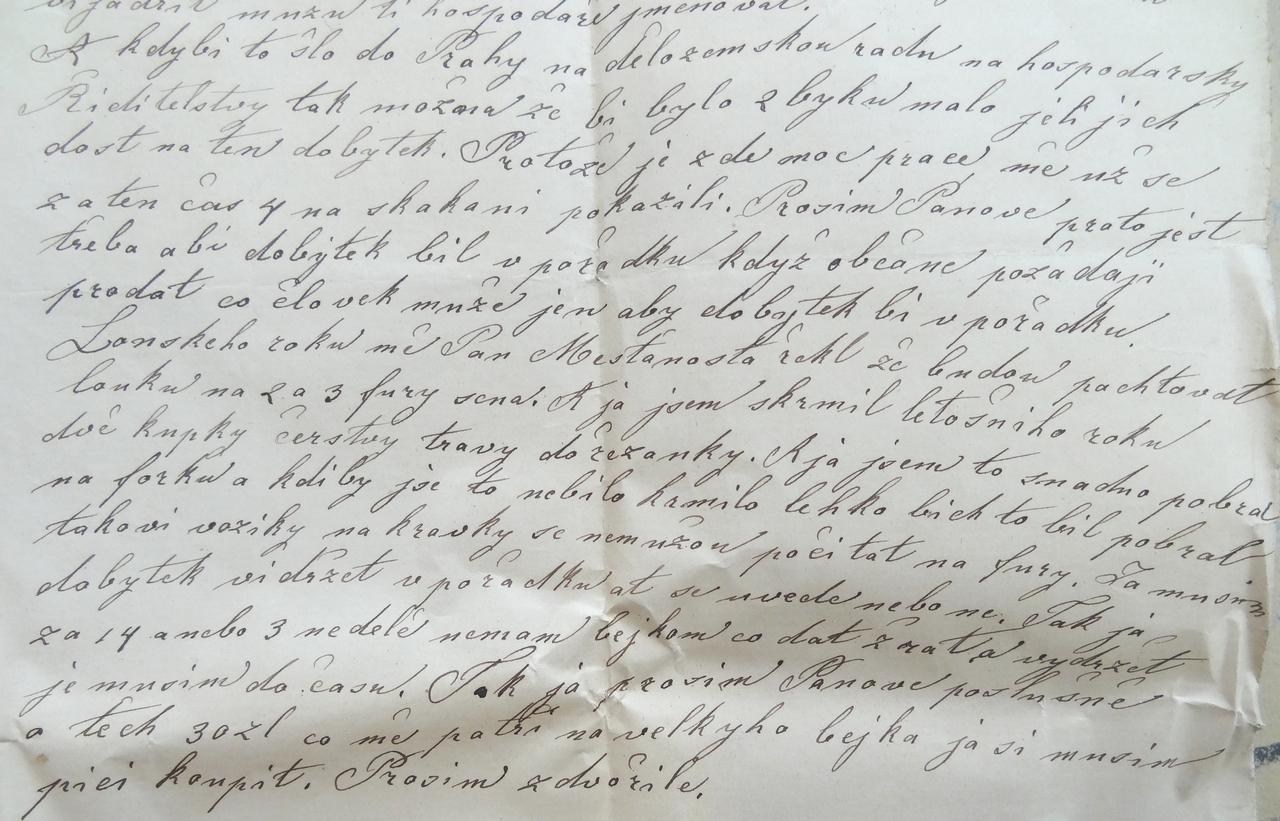 vijadrit muzu ti hospodaře jmenovat.
A kdybi to šlo do Prahy na dělozemskou radu na hospodarsky
Riditelstvy tak možna že bi bylo 2 byku malo jeli jich
dost na ten dobytek. Protože je zde moc prace, mě už se
za ten čas 4 na skakani pokazili. Prosim Panove proto jest
třeba abi dobytek bil v pořadku když občane požadaji
prodat co človek muže jen aby dobytek bi v pořadku.
Lonskeho roku mě Pan Mestanosta řekl že budou pachtovat
louku na 2 a 3 fury sena. A ja jsem skrmil letošniho roku
dvě kupky čerstvy travy do řezanky. A ja jsem to snadno pobral
na forku a kdiby jse to nebilo krmilo lehko bich to bil pobral
takovi voziky na kravky se nemužou počitat na fury. Ja musim
dobytek vidržet v pořadku at se uvede nebo ne. Tak ja
za 14 anebo 3 nedělě nemam bejkom co dat žrat a vydržet
je musim do času. Tak ja prosim Panove poslušně
o těch 30zl co mě patři na velkyho bejka ja si musim
pici koupit. Prosim zdvořile.